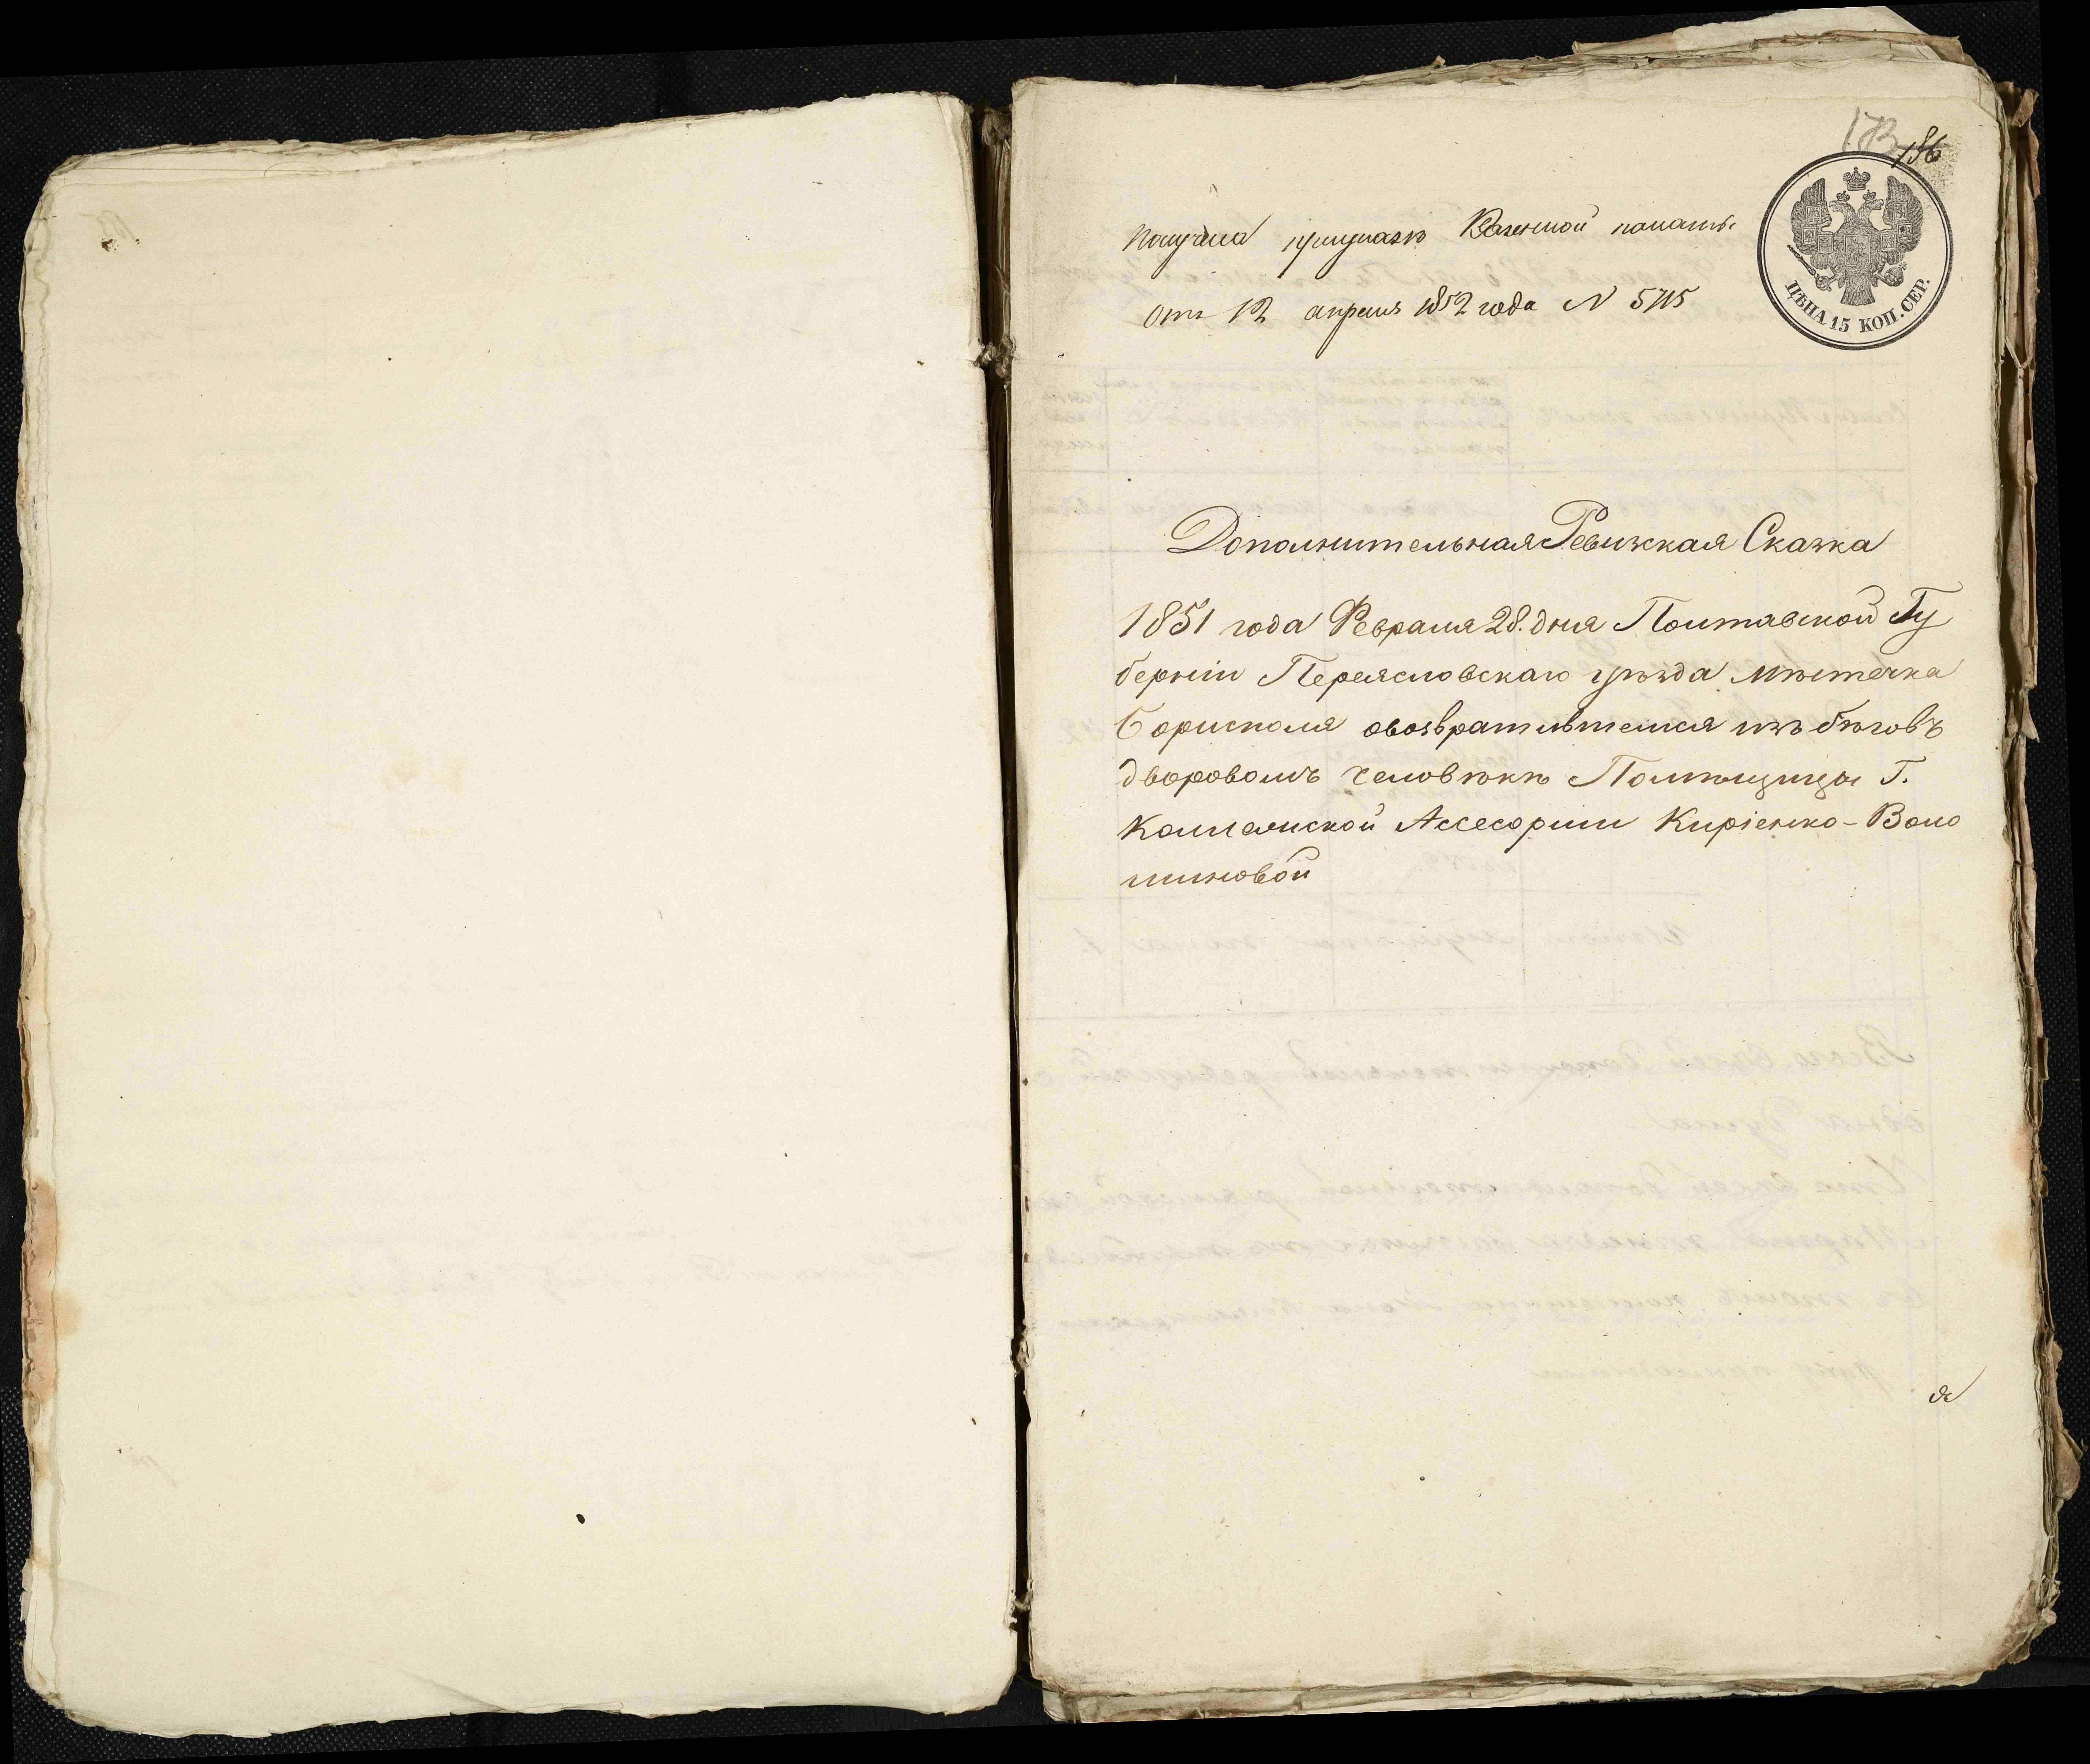 173
186
ЦѢНА 15 КОП. СЕР.
Получена при указѣ Казенной палаты
отъ 12 апреля 1852 года N 5715
Дополнительная Ревизская Сказка
1851 года Февраля 28. дня Полтавской Гу
берніи Переясловскаго уѣзда мѣстечка
Борисполя овозвратившемся изъ бѣговъ
дворовомъ человѣкѣ Помѣщицы Г.
Коллежской Ассесорши Киріенко-Воло
шиновой